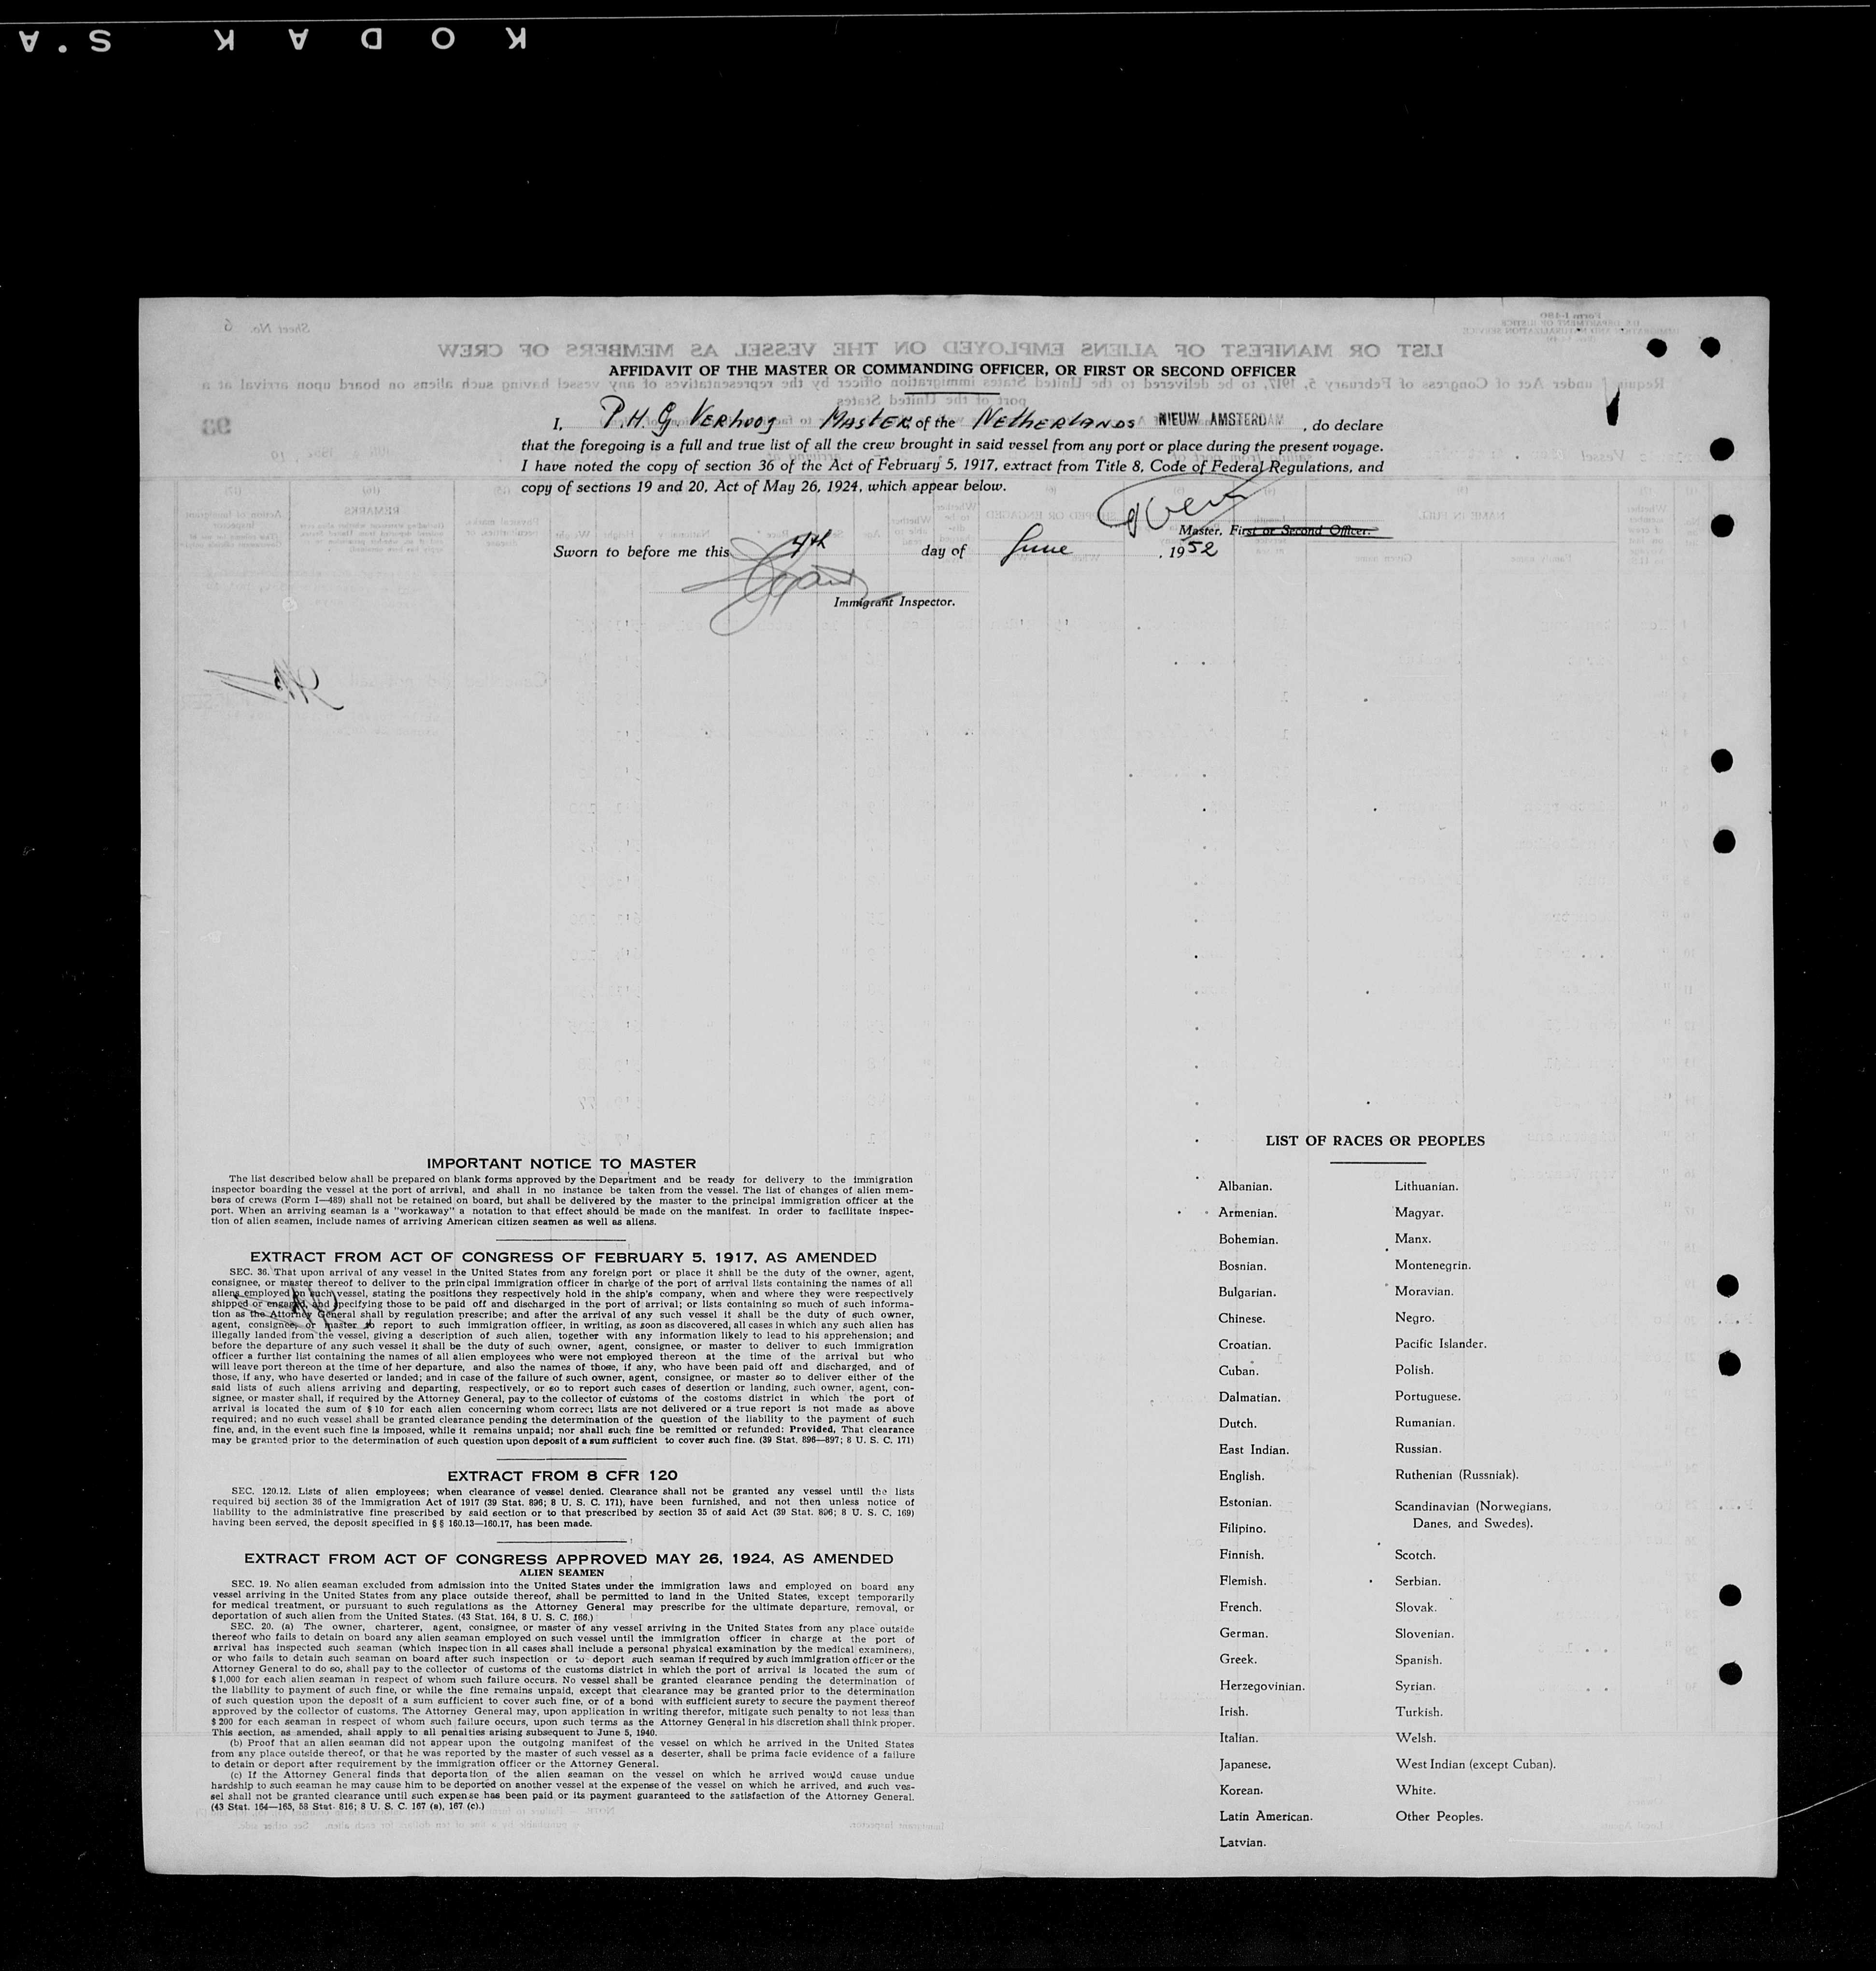 KODAK S.A
AFFIDAVIT OF THE MASTER OR COMMANDING OFFICER, OR FIRST OR SECOND OFFICER
I, P.H.G. Verhoog Master of the Netherlands NIEUW AMSTERDAM, do declare
that the foregoing is a full and true list of all the crew brought in said vessel from any port or place during the present voyage.
I have noted the copy of section 36 of the Act of February 5, 1917, extract from Title 8, Code of Federal Regulations, and
copy of sections 19 and 20, Act of May 26, 1924, which appear below.
Master, First or Second Officer.
Sworn to before me this 4th day of June, 1952
Immigrant Inspector.
IMPORTANT NOTICE TO MASTER
The list described below shall be prepared on blank forms approved by the Department and be ready for delivery to the immigration
inspector boarding the vessel at the port of arrival, and shall in no instance be taken from the vessel. The list of changes of alien mem-
bers of crews (Form I—489) shall not be retained on board, but shall be delivered by the master to the principal immigration officer at the
port. When an arriving seaman is a "workaway" a notation to that effect should be made on the manifest. In order to facilitate inspec-
tion of alien seamen, include names of arriving American citizen seamen as well as aliens.
EXTRACT FROM ACT OF CONGRESS OF FEBRUARY 5, 1917, AS AMENDED
SEC. 36. That upon arrival of any vessel in the United States from any foreign port or place it shall be the duty of the owner, agent,
consignee, or master thereof to deliver to the principal immigration officer in charge of the port of arrival lists containing the names of all
aliens employed on such vessel, stating the positions they respectively hold in the ship's company, when and where they were respectively
shipped or engaged, and specifying those to be paid off and discharged in the port of arrival; or lists containing so much of such informa-
tion as the Attorney General shall by regulation prescribe; and after the arrival of any such vessel it shall be the duty of such owner,
agent, consignee, or master to report to such immigration officer, in writing, as soon as discovered, all cases in which any such alien has
illegally landed from the vessel, giving a description of such alien, together with any information likely to lead to his apprehension; and
before the departure of any such vessel it shall be the duty of such owner, agent, consignee, or master to deliver to such immigration
officer a further list containing the names of all alien employees who were not employed thereon at the time of the arrival but who
will leave port thereon at the time of her departure, and also the names of those, if any, who have been paid off and discharged, and of
those, if any, who have deserted or landed; and in case of the failure of such owner, agent, consignee, or master so to deliver either of the
said lists of such aliens arriving and departing, respectively, or so to report such cases of desertion or landing, such owner, agent, con-
signee, or master shall, if required by the Attorney General, pay to the collector of customs of the costoms district in which the port of
arrival is located the sum of $ 10 for each alien concerning whom correct lists are not delivered or a true report is not made as above
required; and no such vessel shall be granted clearance pending the determination of the question of the liability to the payment of such
fine, and, in the event such fine is imposed, while it remains unpaid; nor shall such fine be remitted or refunded: Provided, That clearance
may be granted prior to the determination of such question upon deposit of a sum sufficient to cover such fine. (39 Stat. 896—897; 8 U. S. C. 171)
EXTRACT FROM 8 CFR 120
SEC. 120.12. Lists of alien employees; when clearance of vessel denied. Clearance shall not be granted any vessel until the lists
required bij section 36 of the Immigration Act of 1917 (39 Stat. 896; 8 U. S. C. 171), have been furnished, and not then unless notice of
liability to the administrative fine prescribed by said section or to that prescribed by section 35 of said Act (39 Stat. 896; 8 U. S. C. 169)
having been served, the deposit specified in § § 160.13—160.17, has been made.
EXTRACT FROM ACT OF CONGRESS APPROVED MAY 26, 1924, AS AMENDED
ALIEN SEAMEN
SEC. 19. No alien seaman excluded from admission into the United States under the immigration laws and employed on board any
vessel arriving in the United States from any place outside thereof, shall be permitted to land in the United States, except temporarily
for medical treatment, or pursuant to such regulations as the Attorney General may prescribe for the ultimate departure, removal, or
deportation of such alien from the United States. (43 Stat. 164, 8 U. S. C. 166.)
SEC. 20. (a) The owner, charterer, agent, consignee, or master of any vessel arriving in the United States from any place outside
thereof who fails to detain on board any alien seaman employed on such vessel until the immigration officer in charge at the port of
arrival has inspected such seaman (which inspection in all cases shall include a personal physical examination by the medical examiners),
or who fails to detain such seaman on board after such inspection or to deport such seaman if required by such immigration officer or the
Attorney General to do so, shall pay to the collector of customs of the customs district in which the port of arrival is located the sum of
$ 1,000 for each alien seaman in respect of whom such failure occurs. No vessel shall be granted clearance pending the determination of
the liability to payment of such fine, or while the fine remains unpaid, except that clearance may be granted prior to the determination
of such question upon the deposit of a sum sufficient to cover such fine, or of a bond with sufficient surety to secure the payment thereof
approved by the collector of customs. The Attorney General may, upon application in writing therefor, mitigate such penalty to not less than
$ 200 for each seaman in respect of whom such failure occurs, upon such terms as the Attorney General in his discretion shall think proper.
This section, as amended, shall apply to all penalties arising subsequent to June 5, 1940.
(b) Proof that an alien seaman did not appear upon the outgoing manifest of the vessel on which he arrived in the United States
from any place outside thereof, or that he was reported by the master of such vessel as a deserter, shall be prima facie evidence of a failure
to detain or deport after requirement by the immigration officer or the Attorney General.
(c) If the Attorney General finds that deportation of the alien seaman on the vessel on which he arrived would cause undue
hardship to such seaman he may cause him to be deported on another vessel at the expense of the vessel on which he arrived, and such ves-
sel shall not be granted clearance until such expense has been paid or its payment guaranteed to the satisfaction of the Attorney General.
(43 Stat. 164—165, 58 Stat. 816; 8 U. S. C. 167 (a), 167 (c).)
LIST OF RACES OR PEOPLES
Albanian.
Armenian.
Bohemian.
Bosnian.
Bulgarian.
Chinese.
Croatian.
Cuban.
Dalmatian.
Dutch.
East Indian.
English.
Estonian.
Filipino.
Finnish.
Flemish.
French.
German.
Greek.
Herzegovinian.
Irish.
Italian.
Japanese.
Korean.
Latin American.
Latvian.
Lithuanian.
Magyar.
Manx.
Montenegrin.
Moravian.
Negro.
Pacific Islander.
Polish.
Portuguese.
Rumanian.
Russian.
Ruthenian (Russniak).
Scandinavian (Norwegians,
Danes, and Swedes).
Scotch.
Serbian.
Slovak.
Slovenian.
Spanish.
Syrian.
Turkish.
Welsh.
West Indian (except Cuban).
White.
Other Peoples.